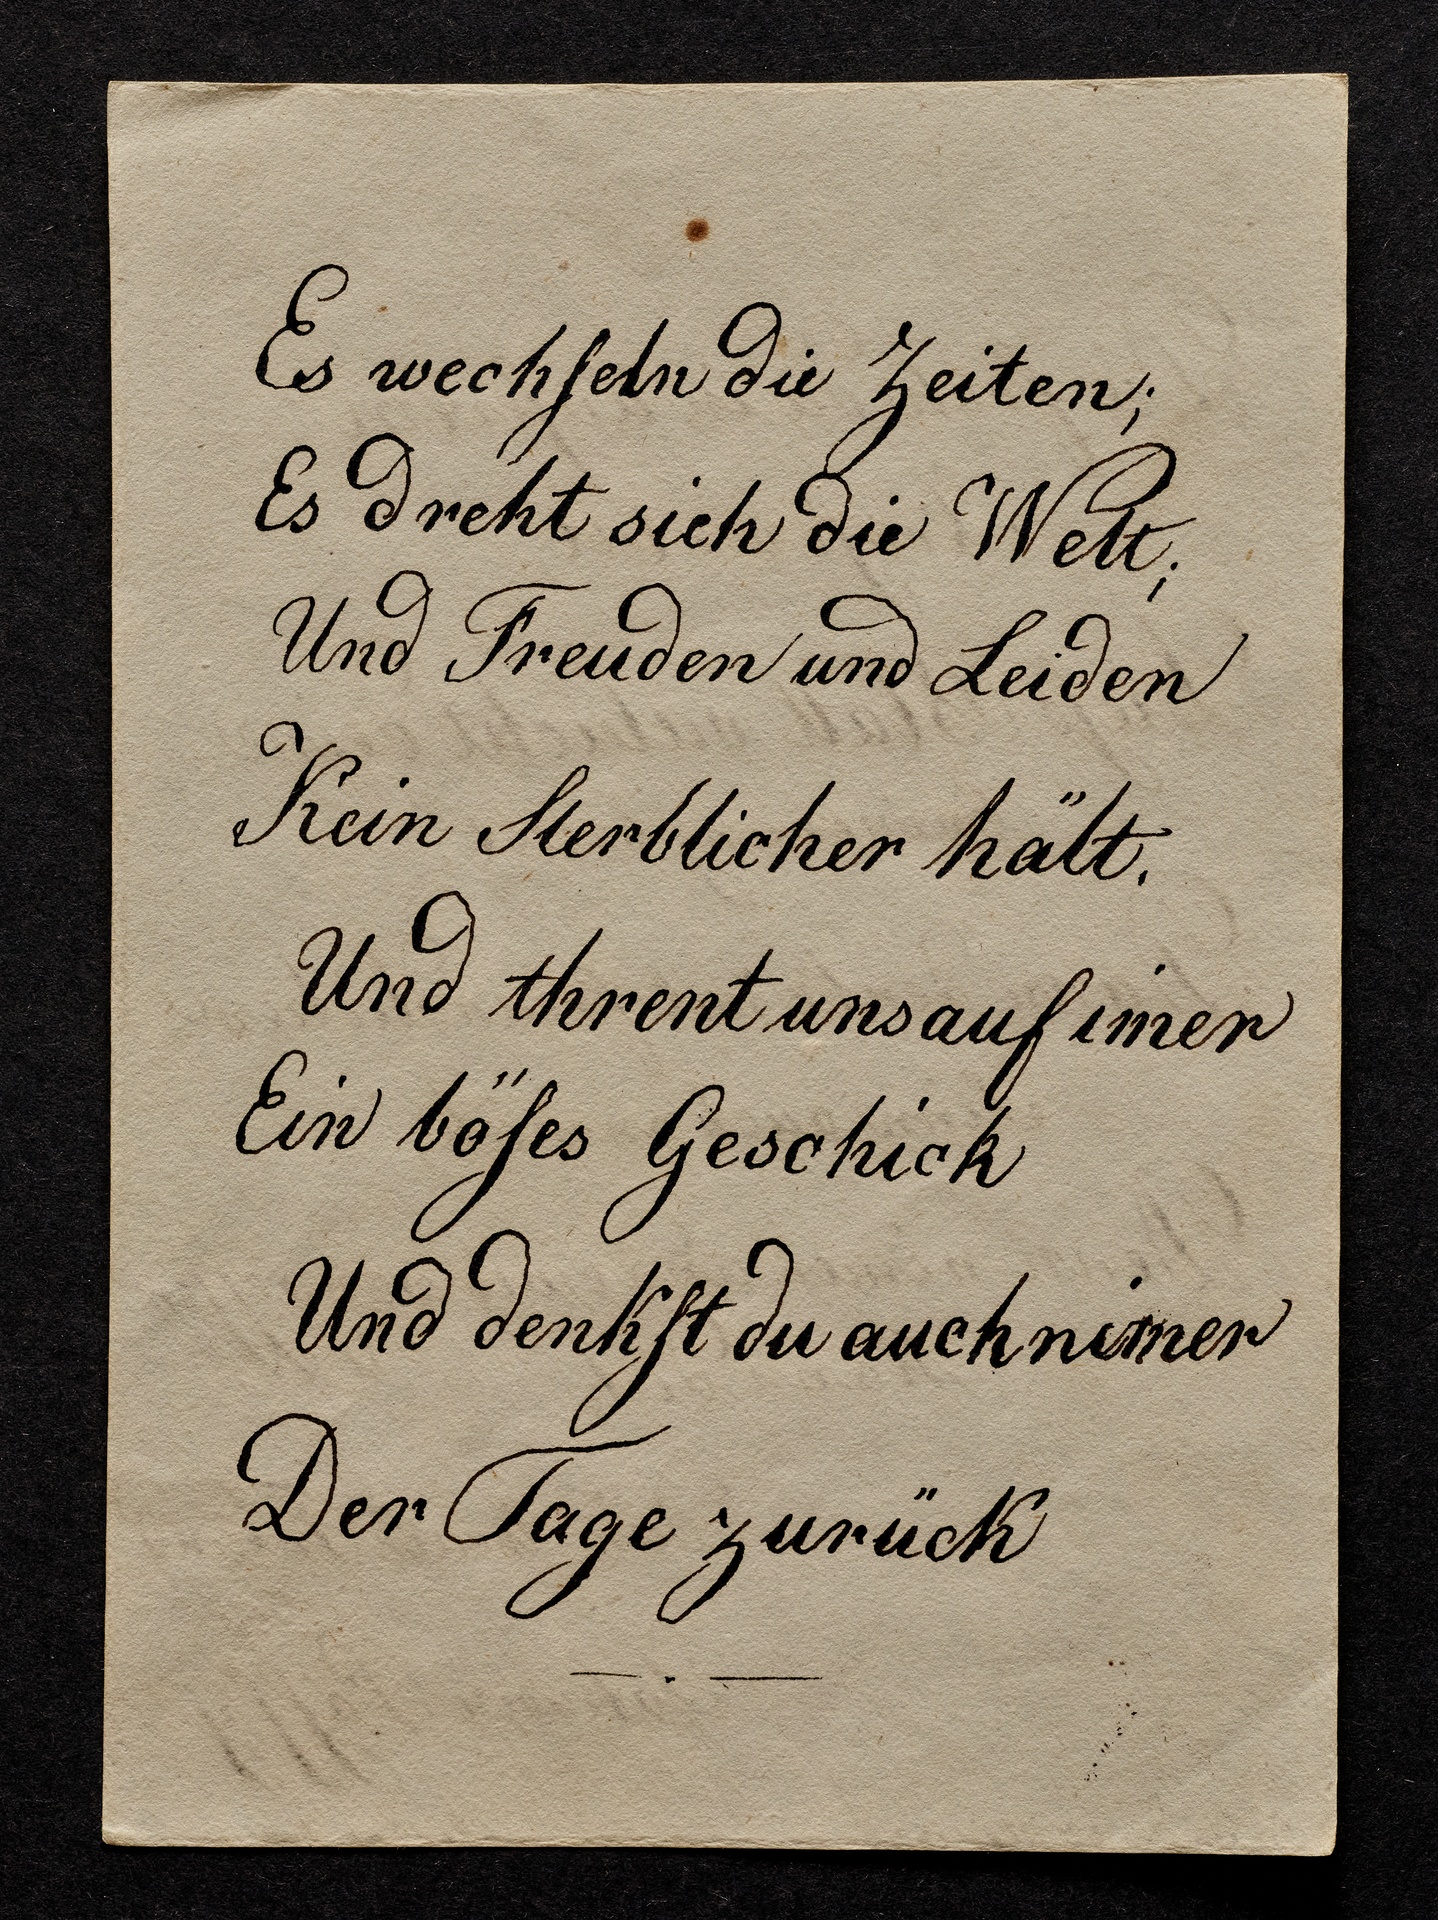 Es wechſeln die Zeiten;
Es dreht sich die Welt;
Und Freuden und Leiden
Kein Sterblicher hält.
Und thrent uns auf imer
Ein böſes Geschick
Und denkſt du auch nimer
Der Tage zurück
— . —